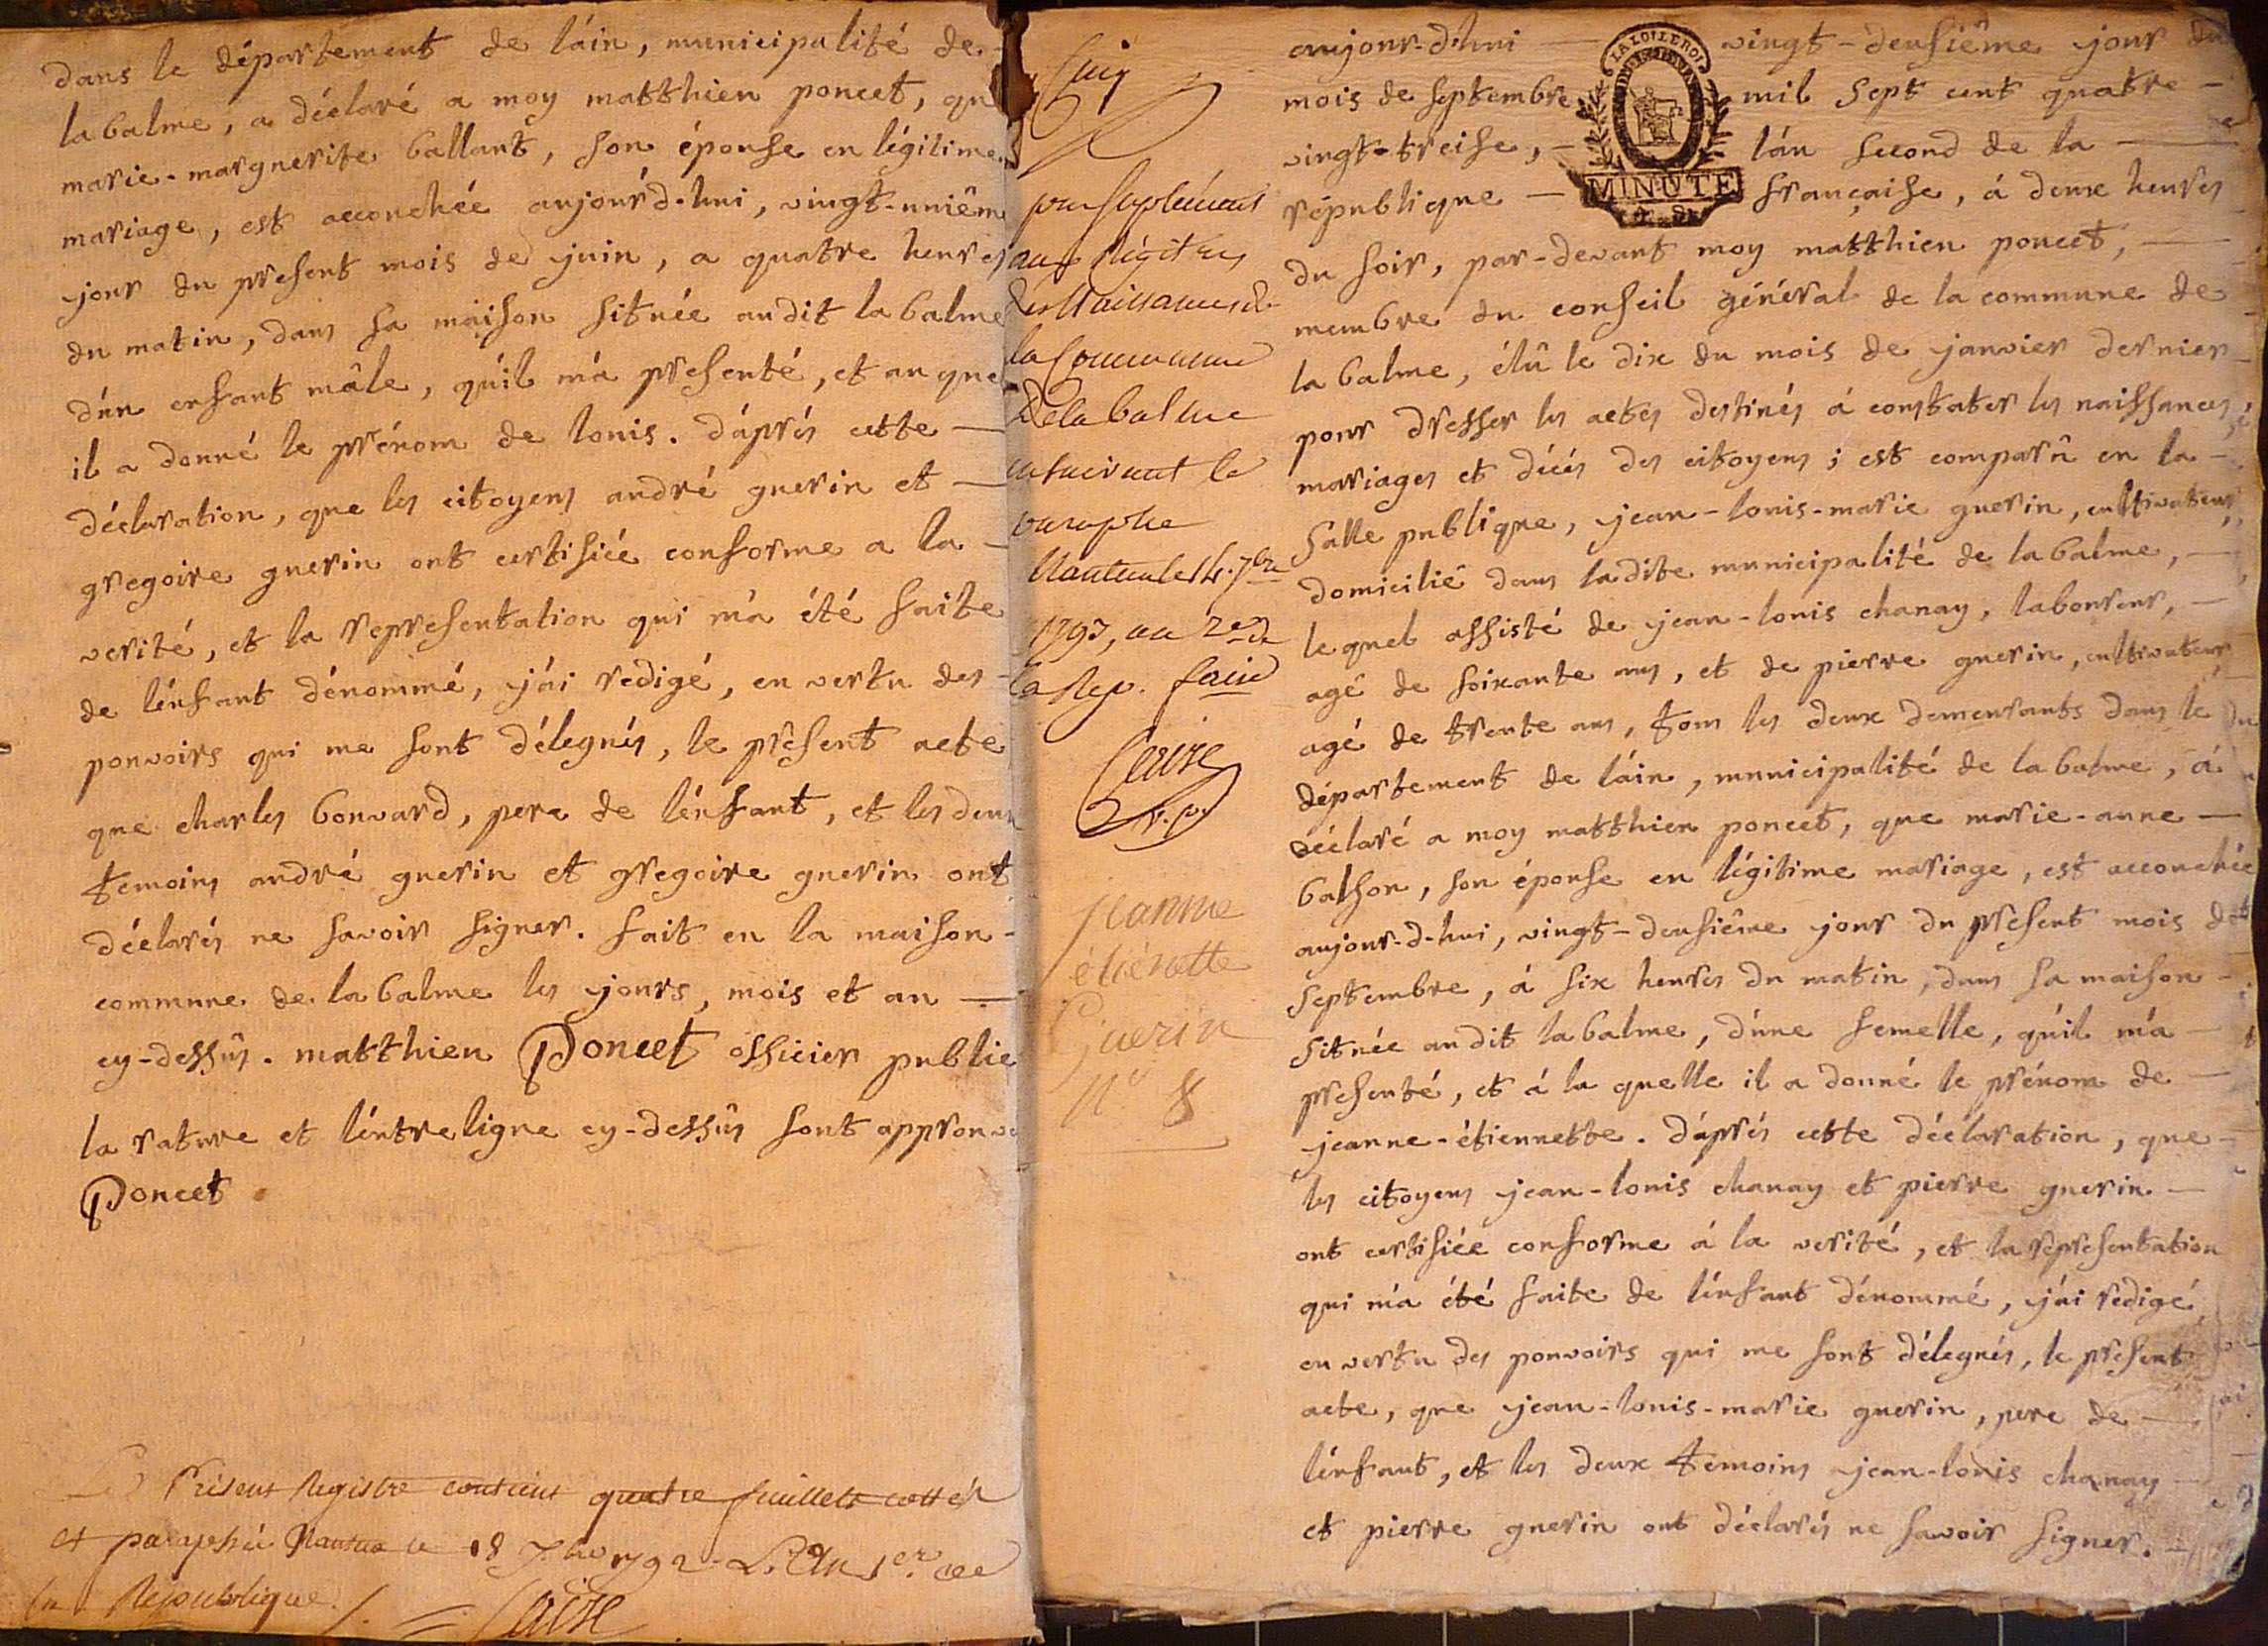 dans le département de láin, municipalité de
la balme, a déclaré a moy matthieu poncet, qu
marie-marguerite ballant, son épouse en légitime
mariage, est accouchée aujourd-hui, vingt-uniêm
jour du present mois de juin, a quatre heures
du matin, dans sa maison située audit la balme
dún enfant mâle, qúil ma presenté, et au quel
il a donné le prénom de louis. dáprés cette —
déclaration, que les citoyens andré guerin et —
gregoire guerin ont certifiée conforme a la —
verité, et la representation qui má été faite
de lénfant dénommé, jái redigé, en vertu des
pouvoirs qui me sont délegués, le present acte
que charles bonvard, pere de lénfant, et les deux
temoins andré guerin et gregoire guerin ont
déclarés ne savoir signer. fait en la maison-
commune de la balme les jours, mois et an —
cy-dessûs. matthieu Poncet officier public
la rature et léntreligne cy-dessûs sont approuvé
Poncet
Présent Registre contient quatre feuillets cottés
et paraphé Nantua le 18 7bre 1792 - L'An 1er. de
la République.
Cinq
pour suplément
aux Régitres
des Naissances de
la Commune
De la balme
en suivant le
paraphe
Nantua le 14. 7bre
1793, an 2e de
la Rep. fçaise
jeanne
étiénette
Guerin
No 8
LA LOI LE ROI
MINUTE
aujour-d'hui — vingt-deusiême jour du
mois de septembre mil sept cent quatre —
vingt-treise, — lán second de la —
république — française, á deux heures
du soir, par-devant moy matthieu poncet, —
membre du conseil général de la commune de
la balme, élû le dix du mois de janvier dernier
pour dresser les actes destinés á constater les naissances,
mariages et décés des citoyens ; est comparû en la —
salle publique, jean-louis-marie guerin, cultivateur,
domicilié dans ladite municipalité de la balme, —
le quel assisté de jean-louis chanay, laboureur, —
agé de soixante ans, et de pierre guerin, cultivateur,
agé de trente ans, tous les deux demeurants dans le
département de láin, municipalité de la balme, á
déclaré a moy matthieu poncet, que marie-anne —
balson, son épouse en légitime mariage, est accouchée
aujour-d-hui, vingt-deusiême jour du present mois de
septembre, á six heures du matin, dans sa maison —
située audit la balme, dúne femelle, qúil má —
presenté, et á la quelle il a donné le prénom de —
jeanne-étiennette. dáprés cette déclaration, que —
les citoyens jean-louis chanay et pierre guerin —
ont certifiée conforme á la verité, et la representation
qui má été faite de lénfant dénommé, jái redigé,
en vertu des pouvoirs qui me sont délegués, le present
acte, que jean-louis-marie guerin, pere de —
lénfant, et les deux temoins jean-louis chanay —
et pierre guerin ont déclarés ne savoir signer. —